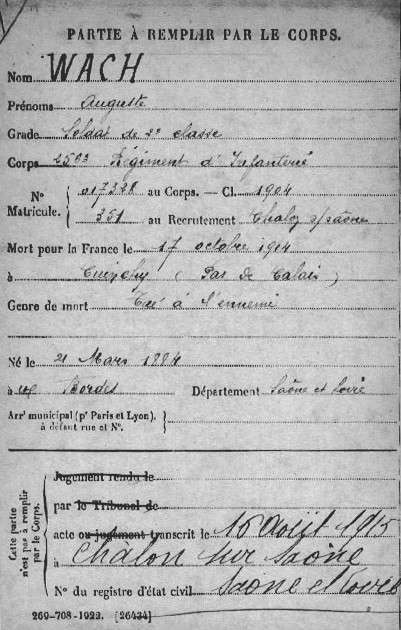 PARTIE À REMPLIR PAR LE CORPS.
Nom WACH
Prénoms Auguste
Grade Soldat de 2e classe
Corps Régiment d'Infanterie
N° Matricule. { 017338 au Corps. — Cl. 1904
351 au Recrutement Chalon s/saône
Mort pour la France le 17 octobre 1914
à Cuinchy (Pas de Calais)
Genre de mort Tué à l'ennemi
Né le 21 Mars 1884
à Bordes Département Saône et Loire
Arr' municipal (p' Paris et Lyon), à défaut rue et N°.
Cette partie n'est pas à remplir par le Corps.
Jugement rendu le
par le Tribunal de
acte ou jugement transcrit le 15 août 1915
à Chalon sur Saône
N° du registre d'état civil Saone et Loire
269-708-1922. [26434]